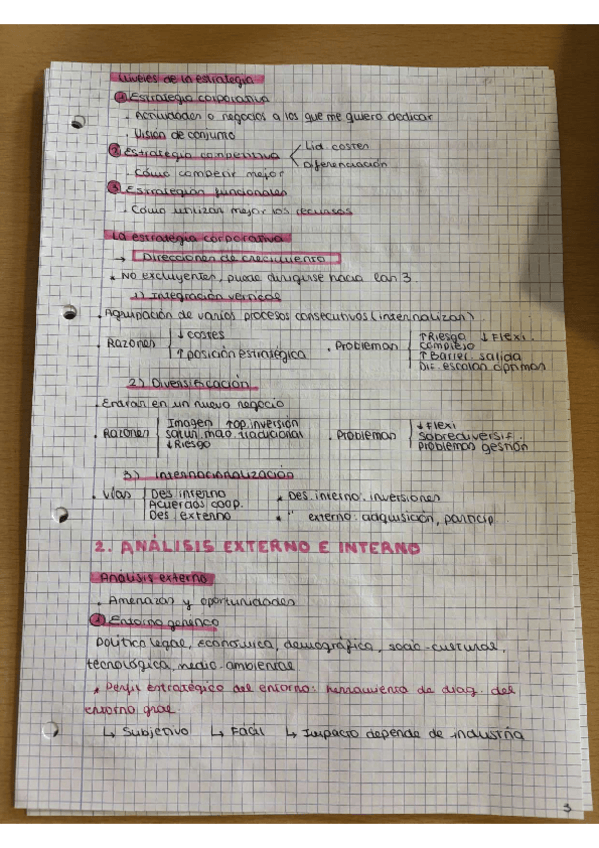 Niveles de la estrategia
① Estrategia corporativa
. Actividades o negocios a los que me quiero dedicar
. Visión de conjunto
② Estrategia competitiva < Lid. costes
Diferenciación
. Cómo competir mejor
③ Estrategias funcionales
. Cómo utilizar mejor los recursos
La estrategia corporativa
→ Direcciones de crecimiento
. No excluyentes, puede dirigirse hacia las 3.
1) Integración vertical
. Agrupación de varios procesos consecutivos (internalizar)
. Razones ↓ costes
↑ posición estratégica
. Problemas ↑Riesgo ↓ Flexi.
complejo
↑ Barrer. salida
Dif. escalas óptimas
2) Diversificación
. Entrar en un nuevo negocio
. Razones Imagen ↑op. inversión
satur. mdo. tradicional
↓ Riesgo
. Problemas ↓ Flexi
sobrediversif.
problemas gestión
3) Internacionalización
. Vías Des interno
Acuerdos coop.
Des externo
. Des. interno: inversiones
. " externo: adquisición, particip
2. ANÁLISIS EXTERNO E INTERNO
Análisis externo
. Amenazas y oportunidades
① Entorno genérico
Político legal, económica, demográfica, socio-cultural,
tecnológica, medio-ambiental
. Perfil estratégico del entorno: herramienta de diag. del
entorno gral.
↳ Subjetivo ↳ Fácil ↳ Impacto depende de industria
3